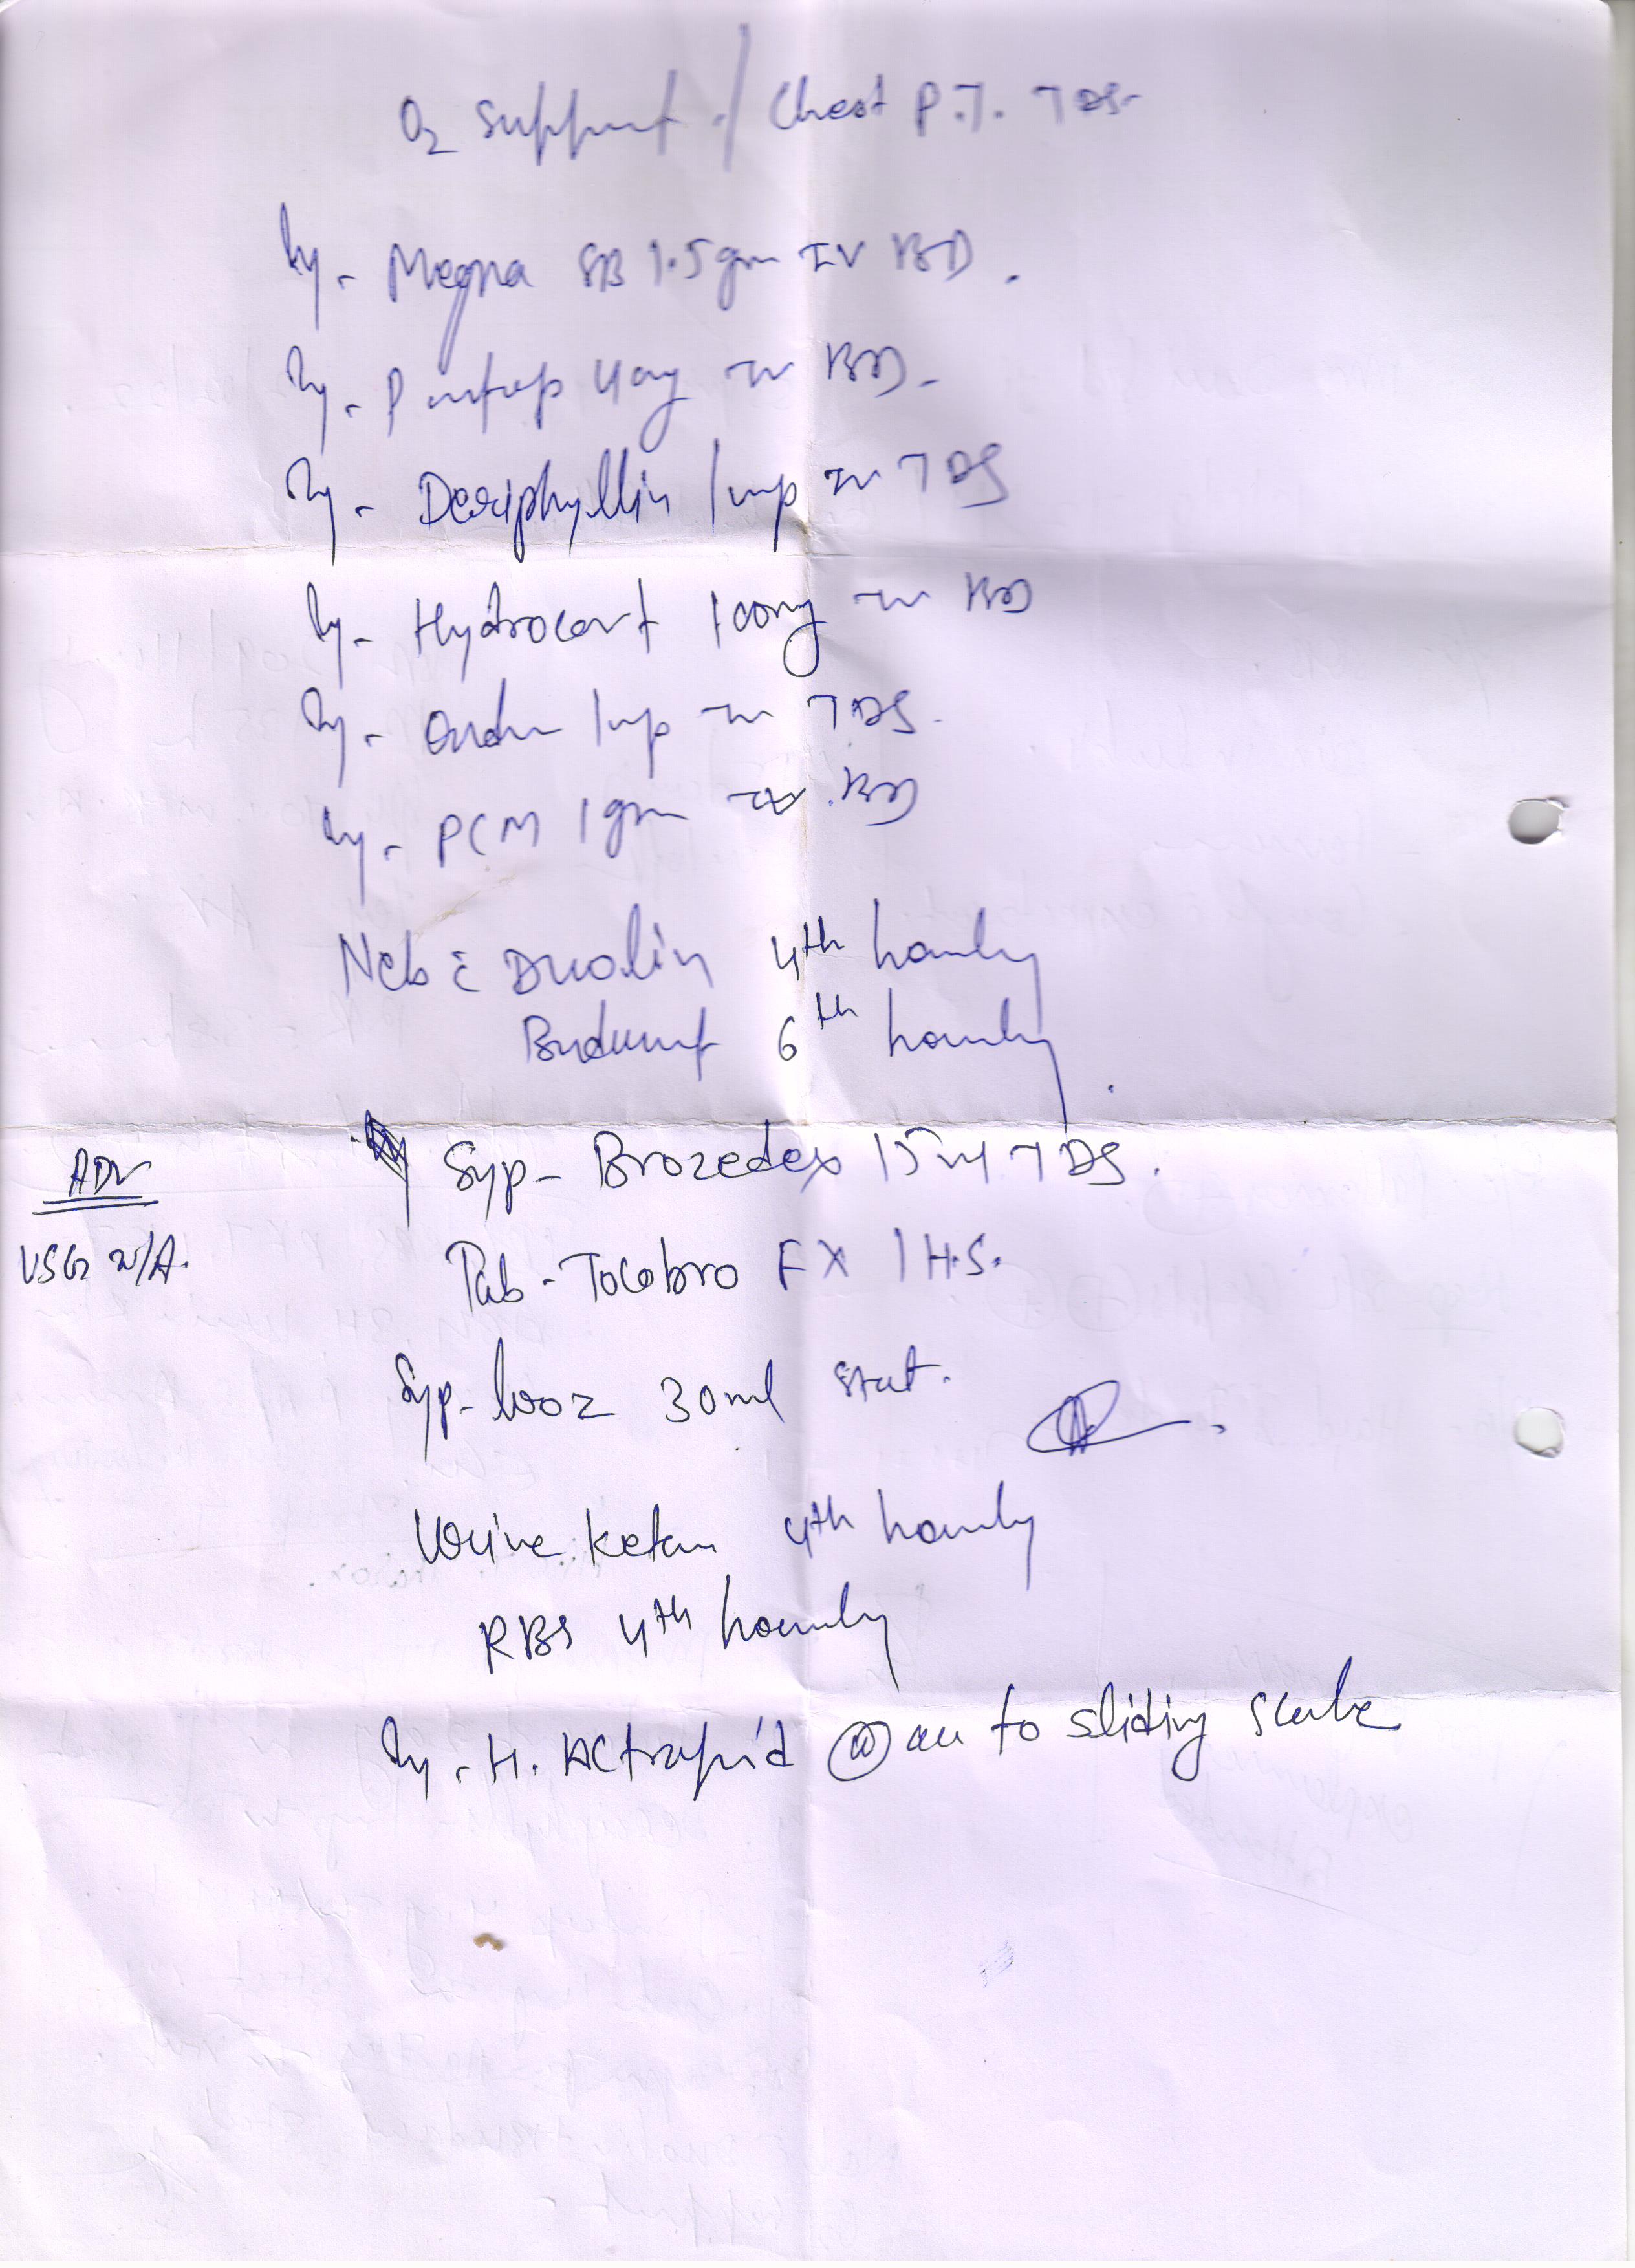 O2 Support / Chest P.T. TDS
Inj. Magna SB 1.5gm IV BD.
Inj. Pantop 40mg IV BD.
Inj. Deriphyllin 1amp IV TDS
Inj. Hydrocort 100mg IV BD
Inj. 1amp IV TDS.
Inj. PCM 1gm IV BD
Neb c̄ Duolin 4th hourly
Budecort 6th hourly
ADV
Syp- Brozedex 15ml TDS.
USG W/A.
Tab- Tocobro FX 1 H.S.
Syp- looz 30ml stat.
Urine Keton 4th hourly
RBS 4th hourly
Inj. H. Actrapid acc to sliding scale